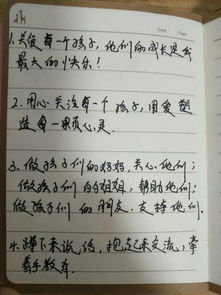 DATE / /Page
1.关爱每一个孩子,他们的成长是我
最大的快乐!
2.用心关注每一个孩子,用爱塑
造每一颗心灵.
3.做孩子们的妈妈,关心他们;
做孩子们的姐姐,帮助他们;
做孩子们的朋友.支持他们.
4.蹲下来说话,抱起来交流,牵
着手教育.